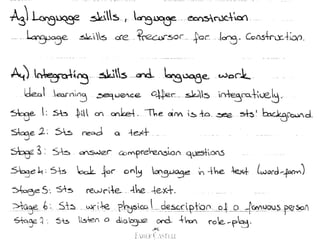 A3) Language skills, language construction
Language skills are Precursor for lang. Construction.
A4) Integrating skills and language work
Ideal learning sequence offer skills integratively.
Stage 1: Sts fill an anket. The aim is to see sts' background.
Stage 2: Sts read a text
Stage 3: Sts answer comprehension questions
Stage 4: Sts look for only language in the text (word-form)
Stage 5: Sts rewrite the text.
Stage 6: Sts write physical description of a famous person
Stage 7: Sts listen a dialogue and than role-play.
FABER CASTELL